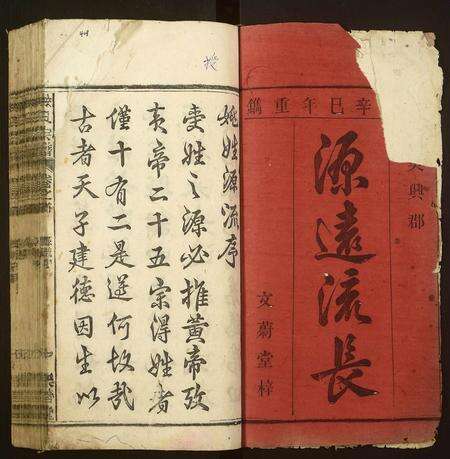 辛巳年重鐫
興郡
源遠流長
文蔚堂梓
姚姓源流序
受姓之源必推黃帝攷
黃帝二十五宗得姓者
僅十有二是遵何故哉
古者天子建德因生以